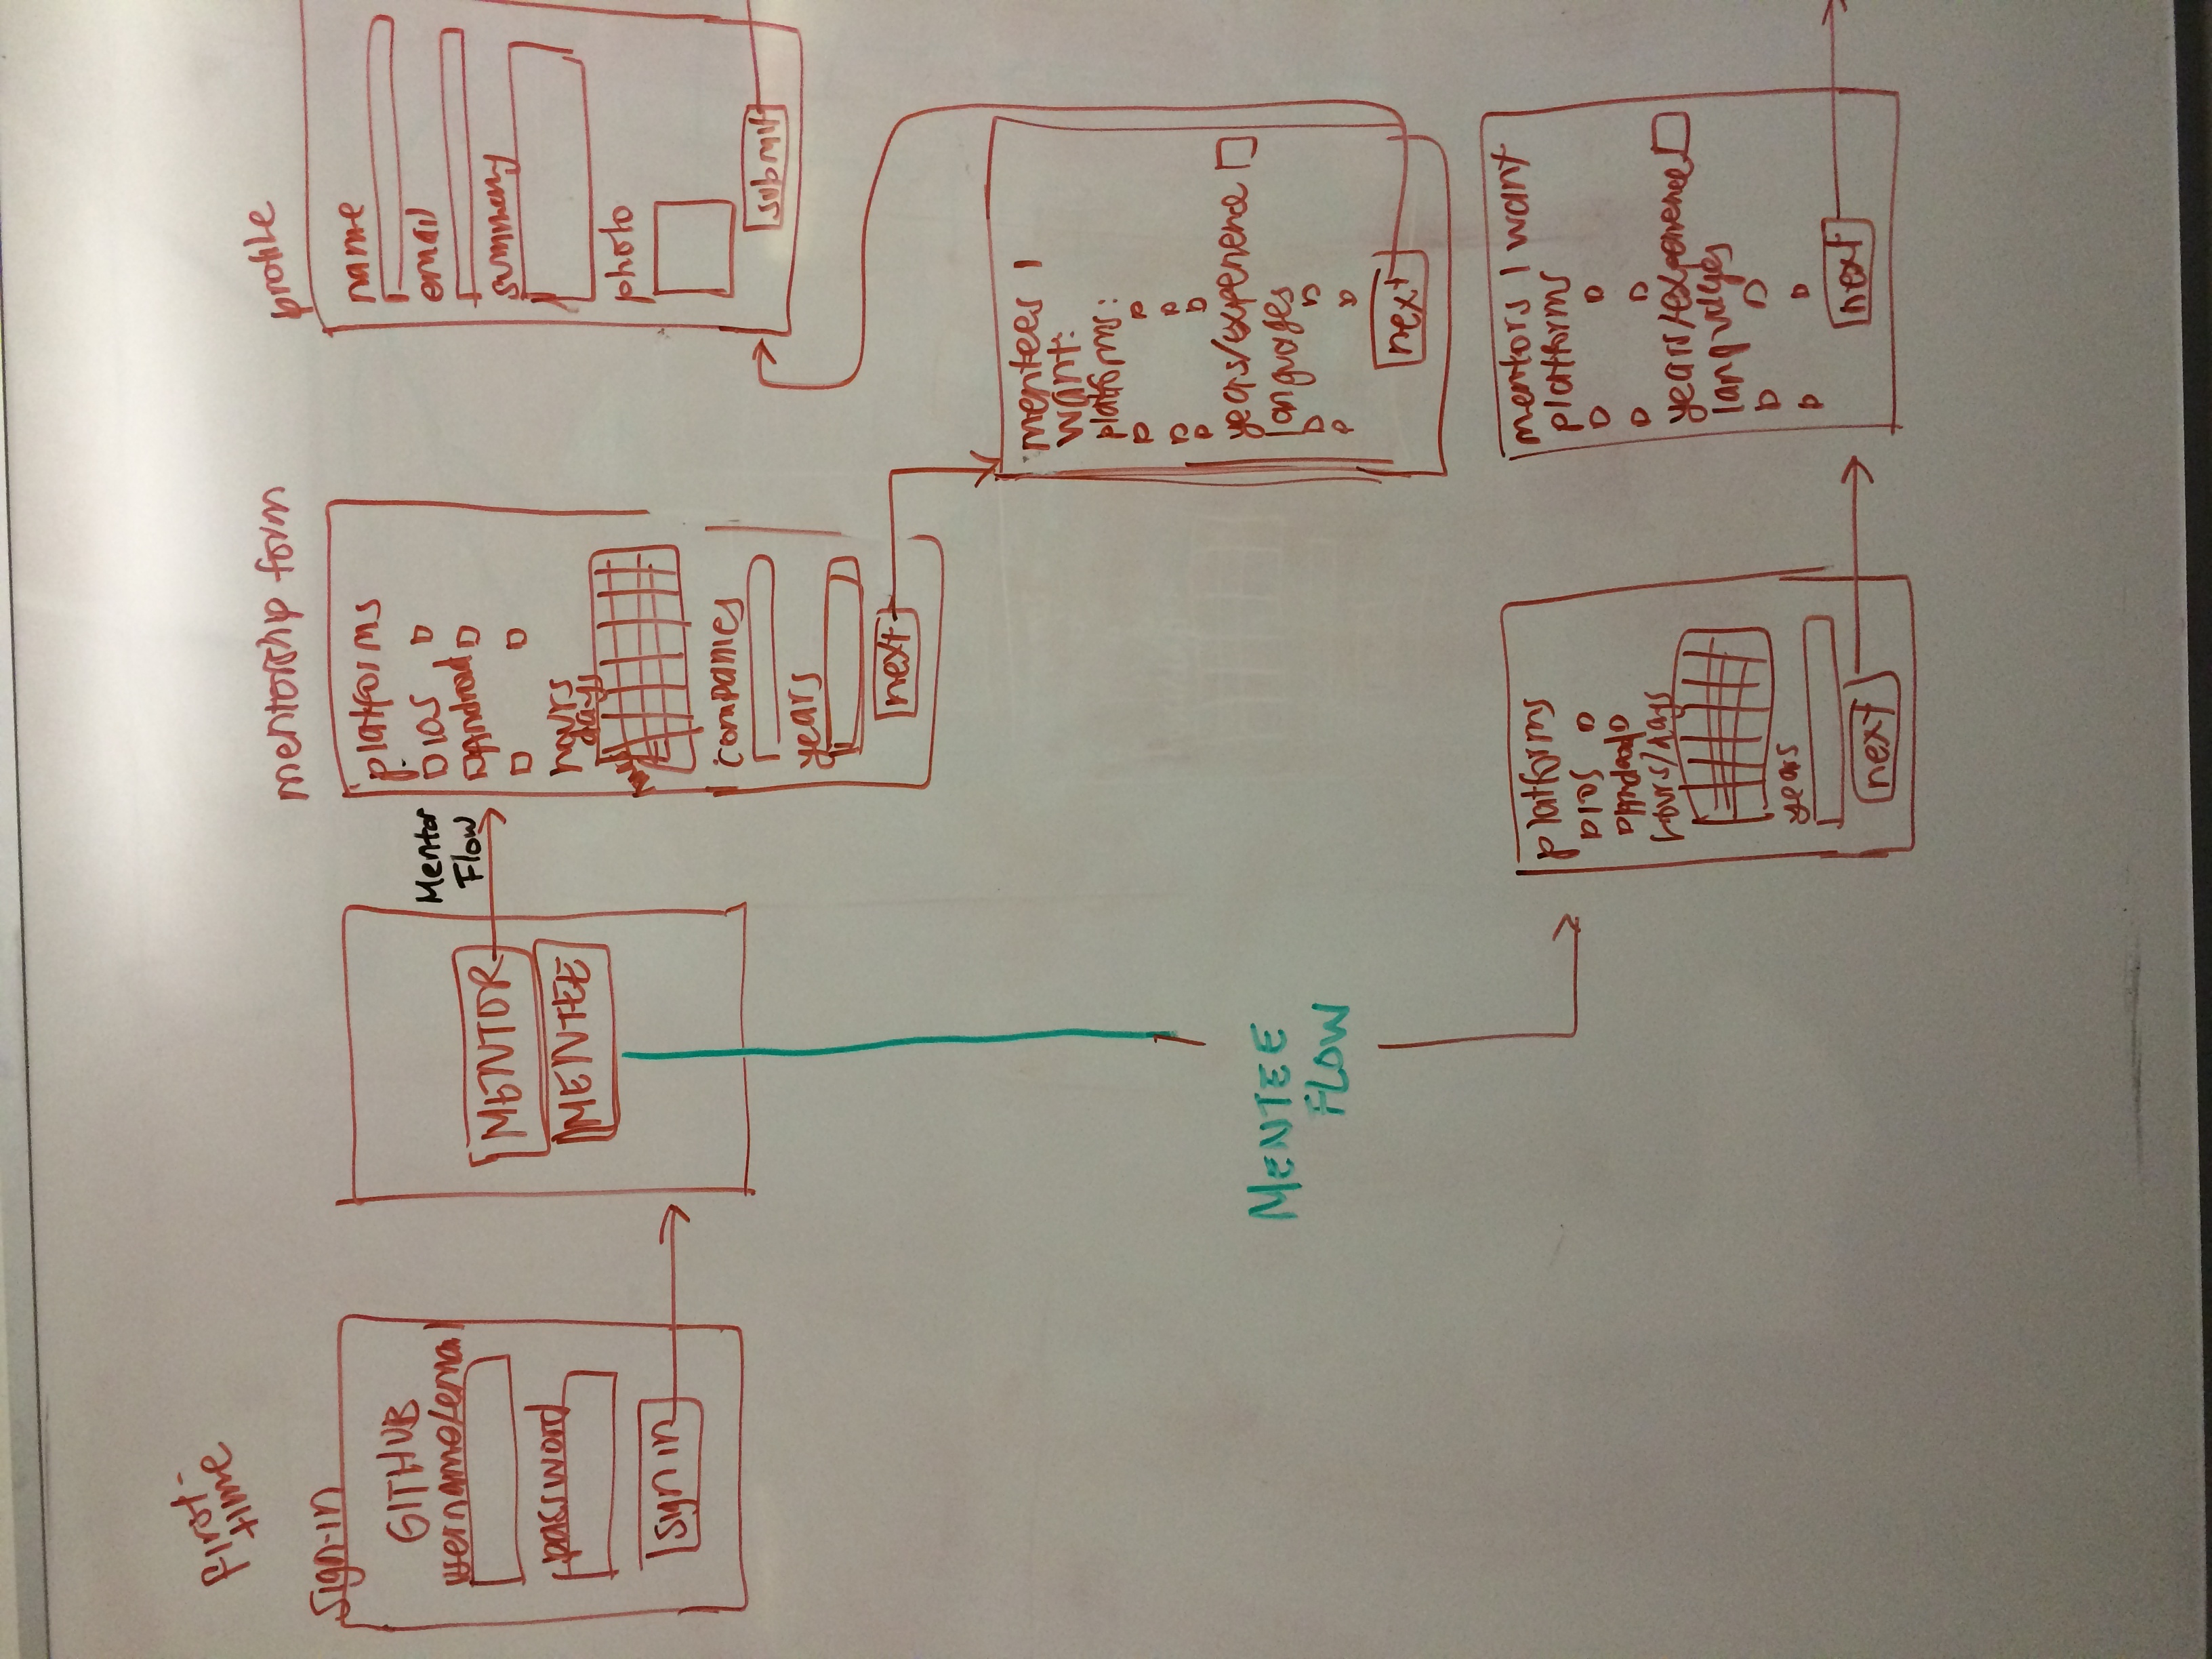 first-
time
sign-in
GITHUB
username/email
password
sign in
MENTOR
MENTEE
Mentor
Flow
mentorship form
platforms
iOS
Android
hours
days
companies
years
next
profile
name
email
summary
photo
submit
mentees I
want:
platforms:
years/experience
languages
next
MENTEE
FLOW
platforms
iOS
Android
hours/days
years
next
mentors I want
platforms
years/experience
languages
next